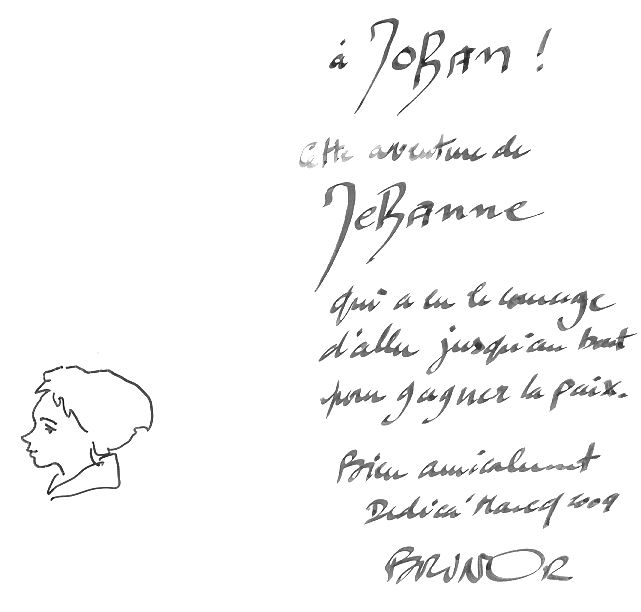 à JoHAn !
Cette aventure de
JeHAnne
qui a eu le courage
d'aller jusqu'au bout
pour gagner la paix.
Bien amicalement
Marcq 2009
BRUNOR